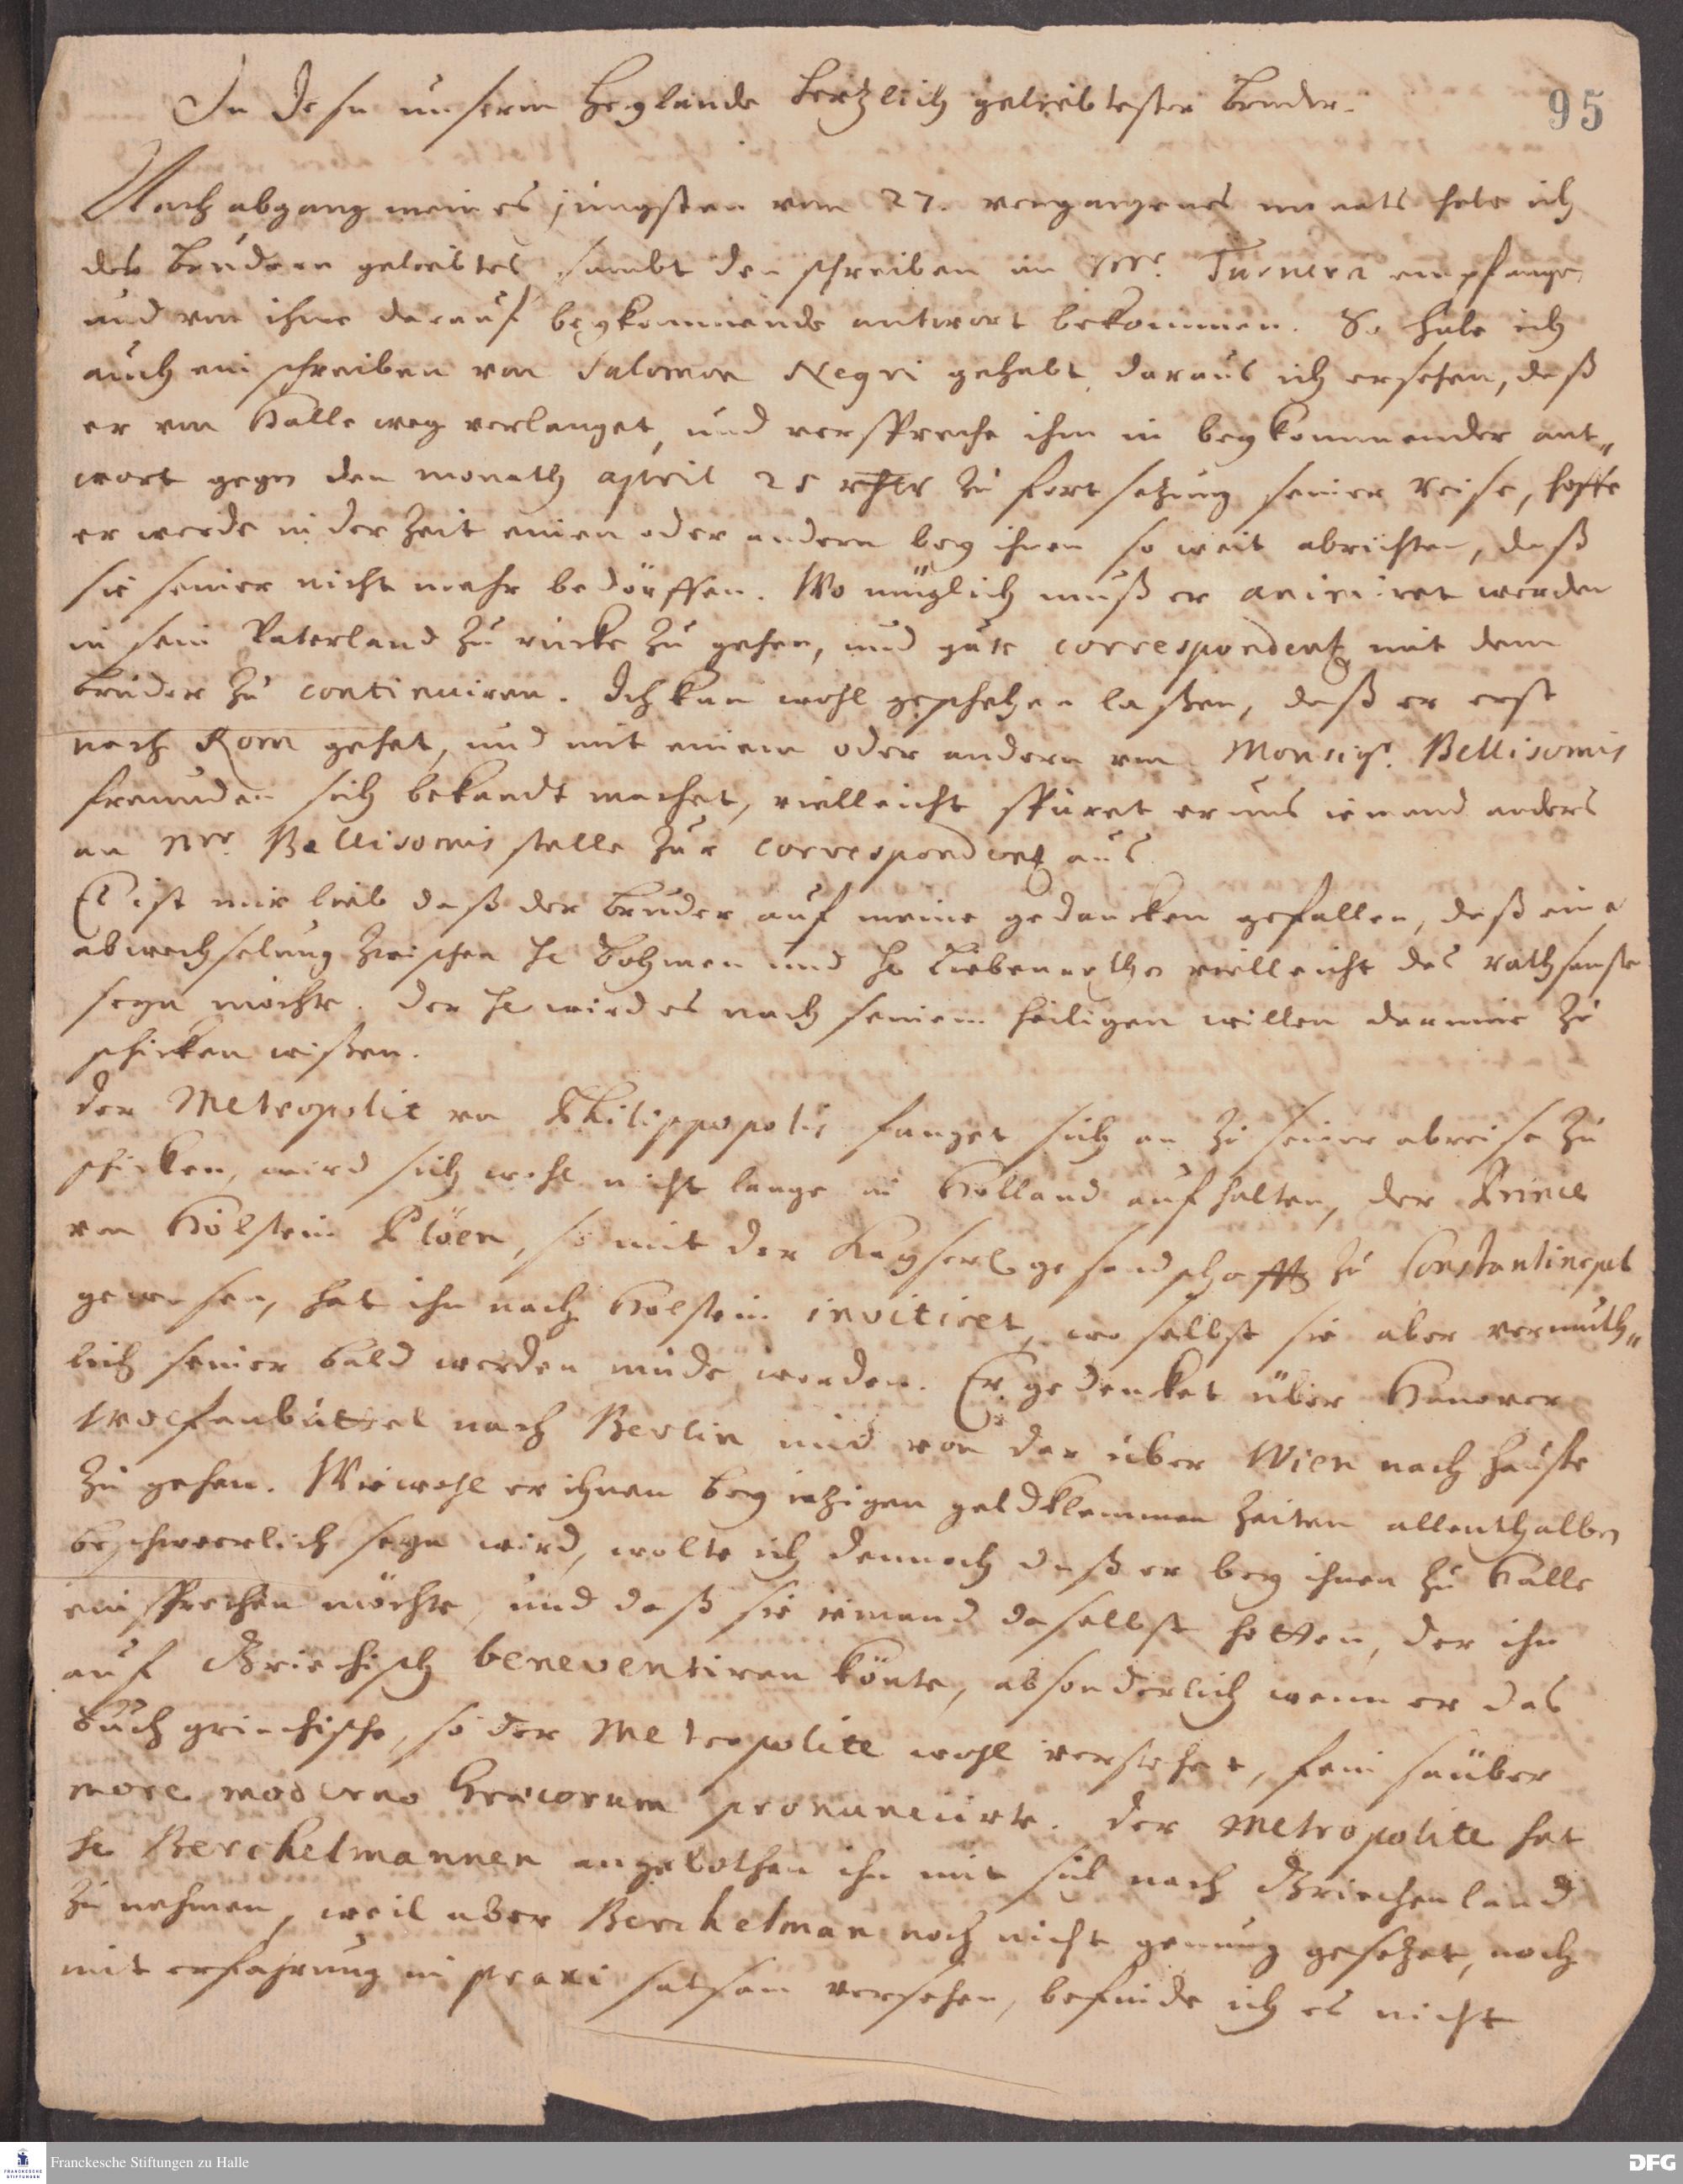 In Jesu unserm Heylande hertzlich geliebtester Bruder.
95
Nach abgang meines jüngsten vom 27. vergangenes monats habe ich
des Brudern geliebtes sambt den schreiben an Mr. Turnern empfangen
und von ihme darauf beykommende antwort bekommen. So habe ich
auch ein schreiben von Salomon Negri gehabt, daraus ich ersehen, daß
er von Halle weg verlanget, und verspreche ihm in beykommender ant„
wort gegen den monath april 25 rthlr zu fortsetzung seiner reise, hoffe
er werde in der zeit einen oder andern bey ihnen so weit abrichten, daß
sie seiner nicht mehr bedörffen. Wo müglich muß er animiret werden
in sein Vaterland zu rücke zu gehen, und gute correspondentz mit dem
Bruder zu continuiren. Ich kan wohl geschehen laßen, daß er erst
nach Rom gehet, und mit einem oder andern von Monsigr. Bellisomis
freunden sich bekandt machet, vielleicht spüret er uns iemand anders
an Mr. Bellisomis stelle zur correspondentz aus.
Es ist mir lieb daß der Bruder auf meine gedancken gefallen, daß eine
abwechselung zwischen H Böhmen und H Liebenrothen vielleicht das rathsamste
seyn möchte. Der H wird es nach seinem heiligen willen darmie zu
schicken wißen.
Der Metropolit von Philippopolis fanget sich an zu seiner abreise zu
schicken, wird sich wohl nicht lange in Holland aufhalten, der Prince
von Holstein Plöen, so mit der Kayserl gesandschafft zu Constantinopel
gewesen, hat ihn nach Holstein invitiret, wo selbst sie aber vermuth„
lich seiner bald werden müde werden. Er gedencket über Hanover
Wolfenbüttel nach Berlin und von dar über Wien nach hause
zu gehen. Wiewohl er ihnen bey ietzigen geldklemmen zeiten allenthalben
beschwerlich seyn wird, wolte ich dennoch daß er bey ihnen zu Halle
einsprechen möchte, und daß sie iemand daselbst hetten, der ihn
auf Griechisch beneventiren könte, absonderlich wenn er das
Buch griechische, so der Metropolite wohl verstehet, fein sauber
more moderno Græcorum pronunciirte. Der Metropolite hat
H Berchelmannen angebothen ihn mit sich nach Griechenland
zu nehmen, weil aber Berchelman noch nicht genung gesetzet, noch
mit erfahrung in praxi satsam versehen, befinde ich es nicht
Franckesche Stiftungen zu Halle
DFG